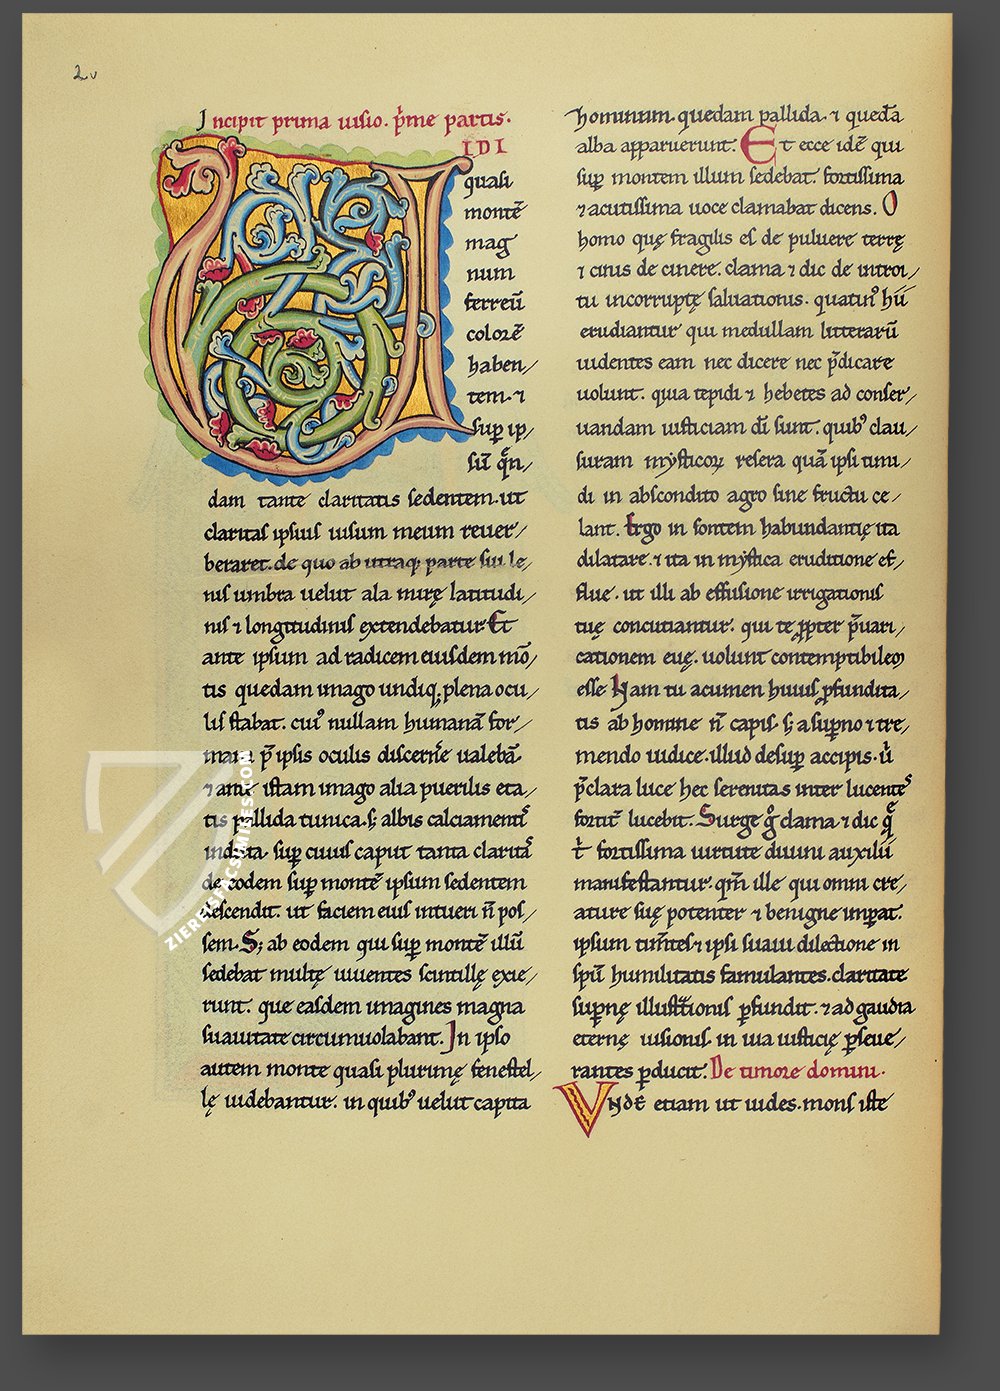 2v
Incipit prima uisio. p̄me partis.
VIDI
quasi
montē
mag
num
ferreū
colorē
haben/
tem. ⁊
suꝑ ip/
sū q̄n/
dam tante claritatis sedentem. ut
claritas ipsius uisum meum reuer/
beraret. de quo ab utraq; parte sui le/
nis umbra uelut ala mirę latitudi/
nis ⁊ longitudinis extendebatur. Et
ante ipsum ad radicem eiusdem mō/
tis quedam imago undiq; plena ocu/
lis stabat. cuiꝰ nullam humanā for/
mam p̄ ipsis oculis discern̄e ualebā.
⁊ ante istam imago alia puerilis eta/
tis pallida tunica. s; albis calciamentis
induta. suꝑ cuius caput tanta claritas
de eodem suꝑ montē ipsum sedentem
descendit. ut faciem eius intueri n̄ pos/
sem. S; ab eodem qui suꝑ montē illū
sedebat multę uiuentes scintillę exie/
runt. que easdem imagines magna
suauitate circumuolabant. In ipso
autem monte quasi plurimę fenestel/
lę uidebantur. in quibꝰ uelut capita
hominum. quedam pallida. ⁊ quedā
alba apparuerunt. Et ecce idē qui
suꝑ montem illum sedebat. fortissima
⁊ acutissima uoce clamabat dicens. O
homo quę fragilis es de puluere terrę
⁊ cinis de cinere. clama ⁊ dic de introi/
tu incorruptę saluationis. quatinꝰ hii
erudiantur qui medullam litterarū
uidentes eam nec dicere nec p̄dicare
uolunt. quia tepidi ⁊ hebetes ad conser/
uandam iusticiam dī sunt. quibꝰ clau/
suram mysticoꝝ resera quā ipsi timi/
di in abscondito agro sine fructu ce/
lant. Ergo in fontem habundantię ita
dilatare. ⁊ ita in mystica eruditione ef/
flue. ut illi ab effusione irrigationis
tuę concutiantur. qui te ꝓpter p̄uari/
cationem euę. uolunt contemptibilem
esse. Nam tu acumen huius ꝓfundita/
tis ab homine n̄ capis. s; a suꝑno ⁊ tre/
mendo iudice. illud desuꝑ accipis. u̇
p̄clara luce hec serenitas inter lucentes
fortit̄ lucebit. Surge g̊ clama ⁊ dic q̄
t̄ fortissima uirtute diuini auxilii
manifestantur. qm̄ ille qui omni cre/
ature suę potenter ⁊ benigne imꝑat.
ipsum tim̄tes ⁊ ipsi suaui dilectione in
spū humilitatis famulantes. claritate
suꝑnę illust̄tionis ꝑfundit. ⁊ ad gaudia
eternę uisionis. in uia iusticię ꝑseue/
rantes ꝑducit. De timore domini.
Vnde etiam ut uides. mons iste
ZIEREISFACSIMILES.COM